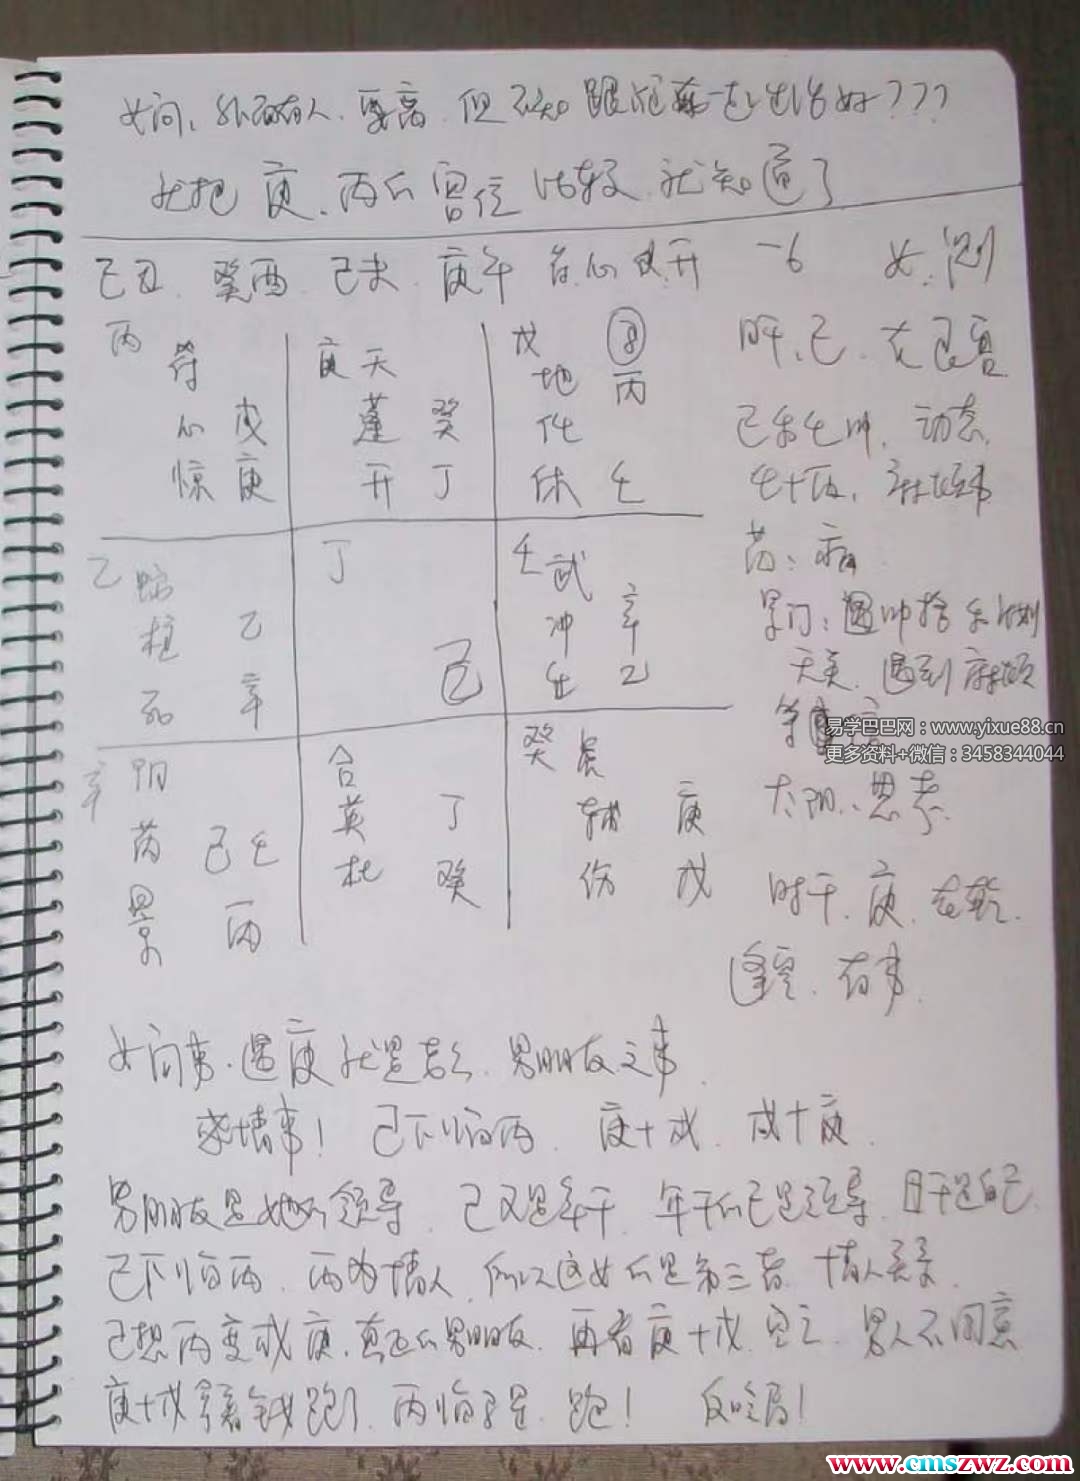 女问、外面有人、要离、但不知跟他在一起生活好???
就把庚、丙的宫位比较就知道了
己丑 癸酉 己未 庚午 符心 开 一6 女问
丙 符 心 戊 惊 庚
庚 天 蓬 癸 开 丁
戊 地 任 丙 休 壬
乙 蛇 柱 乙 死 辛
丁 己
壬 武 冲 辛 生 乙
辛 阴 芮 己 壬 景 丙
合 英 丁 杜 癸
癸 虎 辅 庚 伤 戊
日干、己、在艮宫
动态
芮:病
景门:
天英 遇到麻烦
太阴、思考
时干、庚、在乾
逢空、有事
女问事、遇庚就是老公、男朋友之事
求情事! 己下临丙、庚+戊、戊+庚
男朋友是她的领导、己又是年干、年干的己是领导、日干是自己
己下临丙、丙为情人、所以这女的是第三者、情人关系
己想丙变成庚、真正的男朋友、再看庚+戊、空亡、男人不同意
庚+戊 拿着钱跑了、丙临 跑! 反吟局!
易学巴巴网:www.yixue88.cn
更多资料+微信:3458344044
www.cmszwz.com